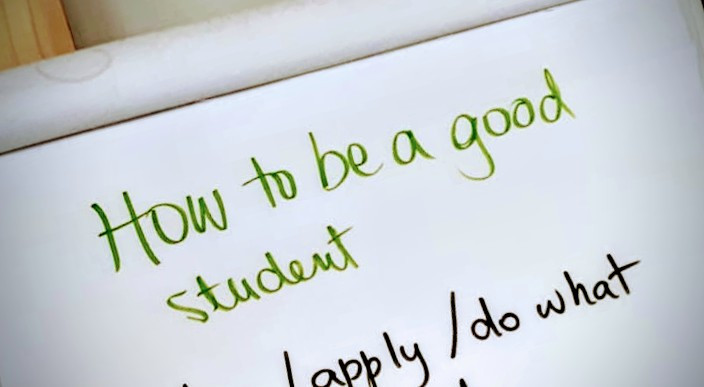 How to be a good
student
/apply/do what